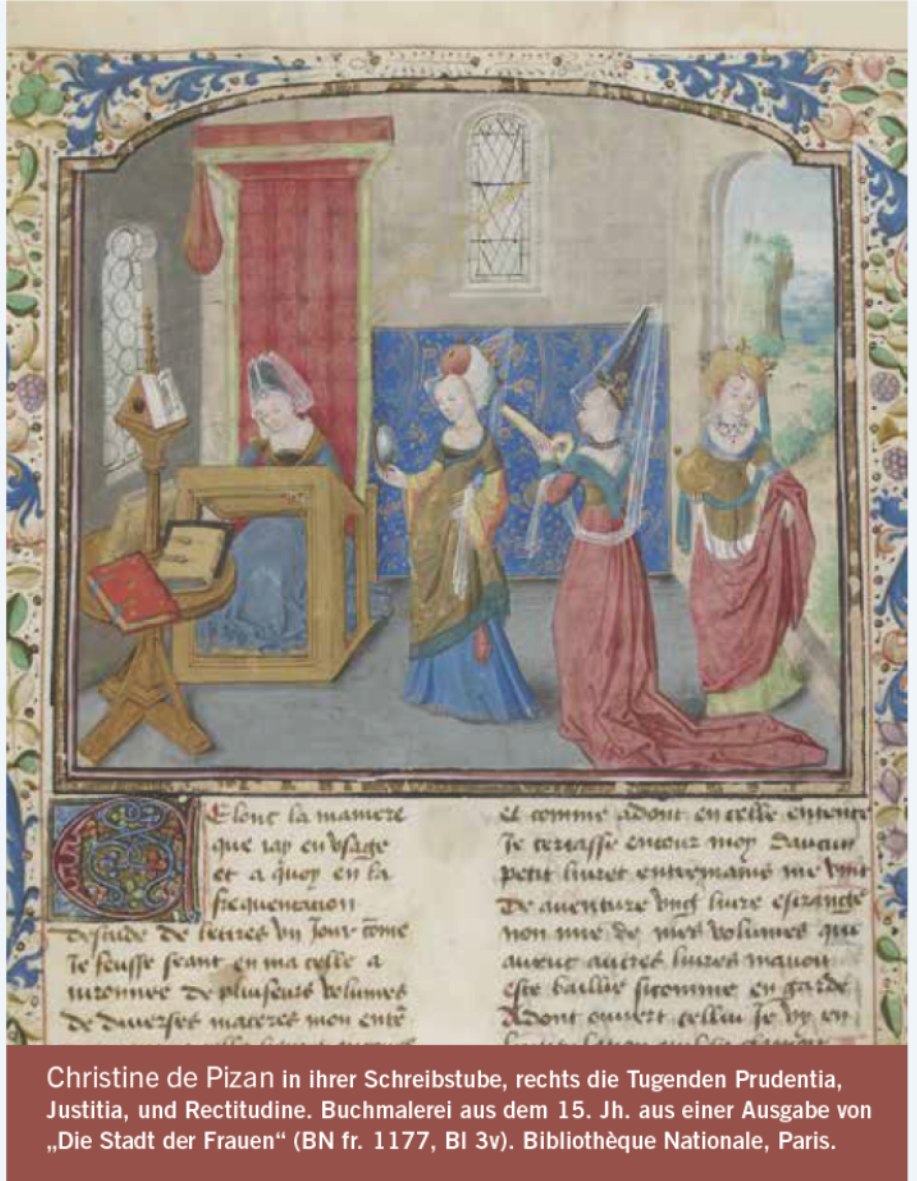 SElonc la maniere
que iay en vsage
et a quoy en la
frequentacion
destude de lettres vn Jour come
Je feusse seant en ma celle a
uironnee de pluseurs volumes
de diuerses materes mon ente
et comme adont en celle entente
Je cerchasse entour moy daucun
petit liuret entremains me vint
De auenture vng liure estrange
non mie de mes volumes qui
auec autres liures mauoit
este baillie sicomme en garde
Adont ouvert cellui Je vy en
Christine de Pizan in ihrer Schreibstube, rechts die Tugenden Prudentia,
Justitia, und Rectitudine. Buchmalerei aus dem 15. Jh. aus einer Ausgabe von
„Die Stadt der Frauen“ (BN fr. 1177, Bl 3v). Bibliothèque Nationale, Paris.